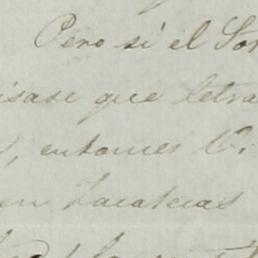 Pero si el Sor
isase que letra
, entonces V.
en Zacatecas